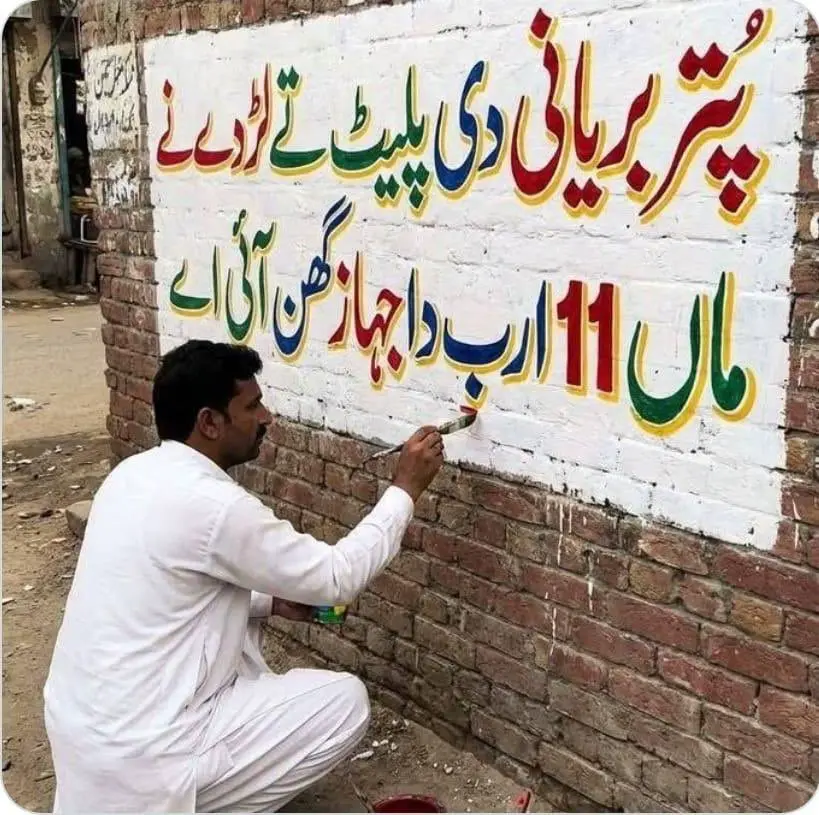 پُتر بریانی دی پلیٹ تے لڑدے نے
ماں 11 ارب دا جہاز گھن آئی اے